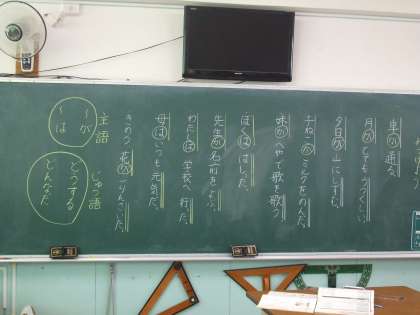 車が通る。
月がとてもうつくしい。
夕日が山にしずむ。
子ねこがミルクをのんだ。
妹がへやで歌を歌う
ぼくははしった。
先生が名前をよぶ。
わたしは学校へ行った。
母はいつも元気だ。
きのう花がさいた。
主語
～が
～は
じゅつ語
どうする
どんなだ